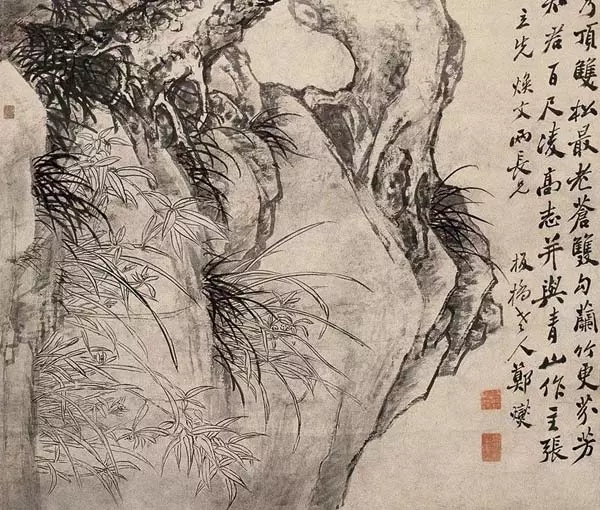 頂雙松最老蒼雙勾蘭竹更芬芳
知君百尺凌高志并與青山作主張
立先 煥文兩長兄
板橋老人鄭燮